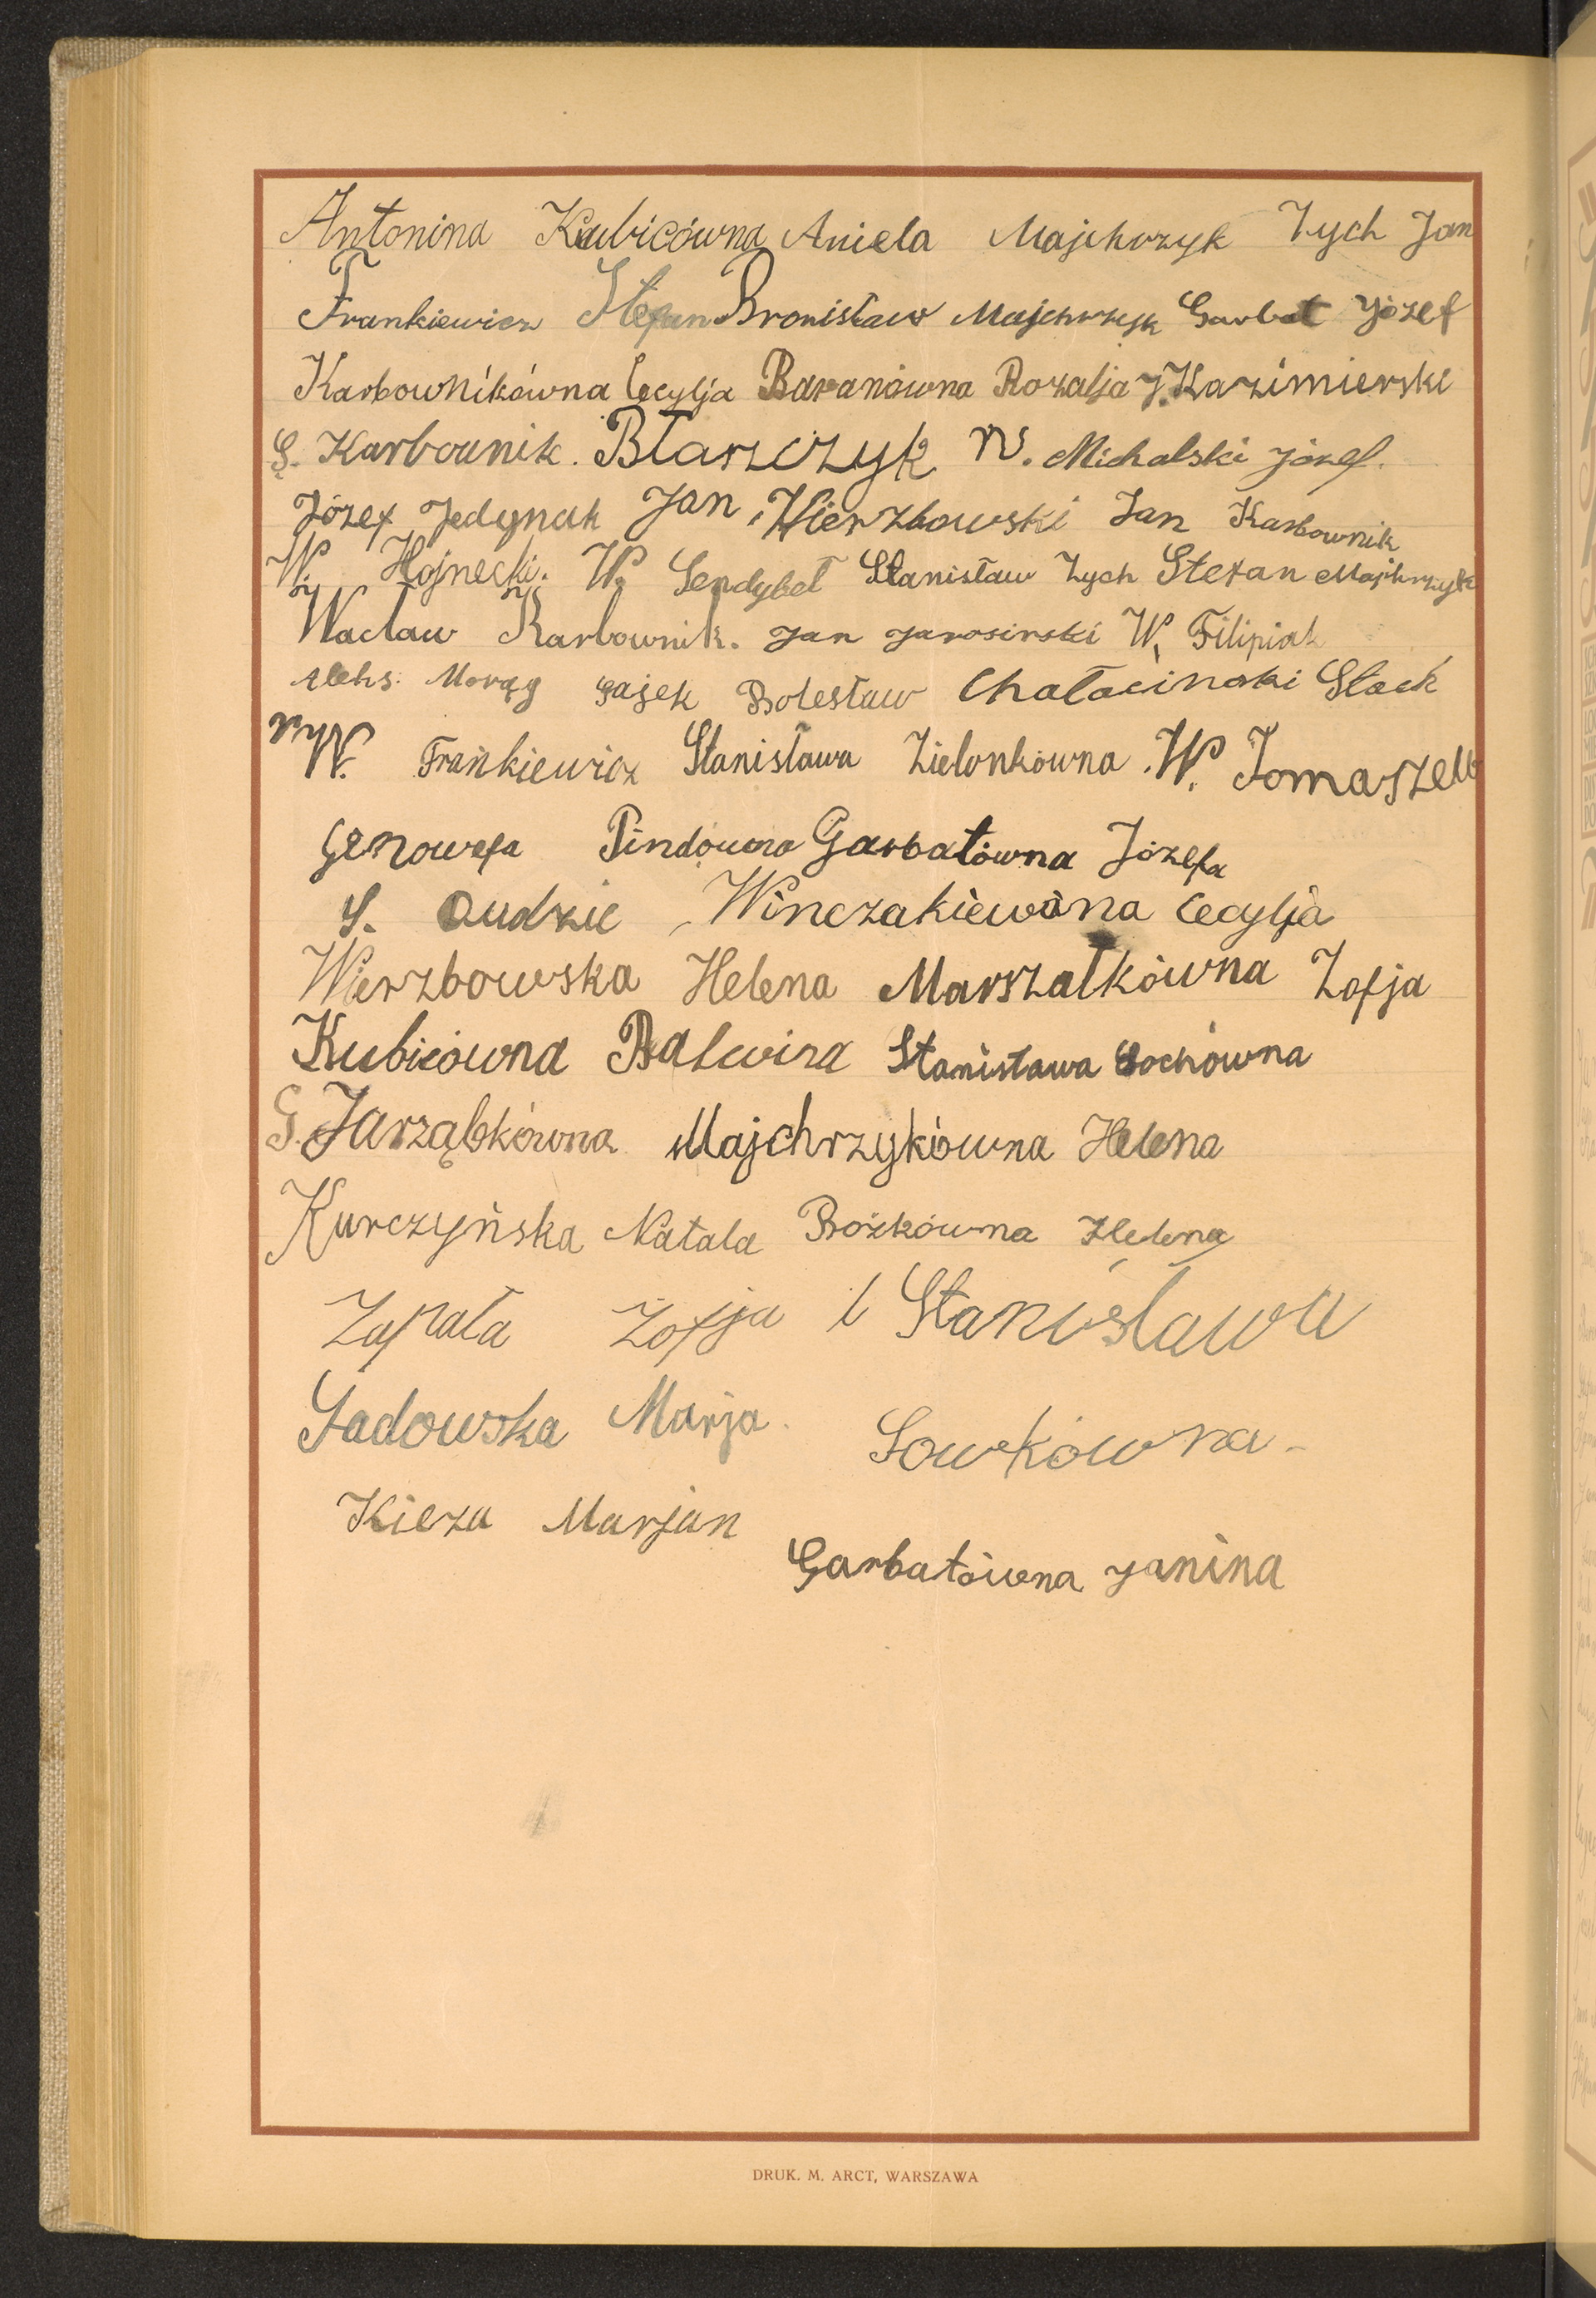 Antonina Kubicówna Aniela Majchrzyk Zych Jan
Frankiewicz Stefan Bronisław Majchrzyk Garbat Józef
Karbownikówna Cecylja Baranówna Rozalja J. Kazimierski
S. Karbownik. Błarzczyk W. Michalski Józef.
Józef Jedynak Jan Wierzbowski Jan Karbownik
W. Hojnecki. W. Sendybeł Stanisław Zych Stefan Majchrzyk
Wacław Karbownik. Jan Jarosiński W. Filipiak
Aleks. Morąg Gajek Bolesław Chałaciński Stach
W. Frankiewicz Stanisława Zielonkówna W. Tomaszew
Genowefa Pindówna Garbatówna Józefa
S. Dudzic Winczakiewówna Cecylja
Wierzbowska Helena Marszałkówna Zofja
Kubicówna Balwina Stanisława Sochówna
G. Jarząbkówna Majchrzykówna Helena
Kurczyńska Natala Bożkówna Helena
Zapała Zofja i Stanisława
Sadowska Marja. Sowkówna
Kieza Marjan
Garbatówna Janina
DRUK. M. ARCT, WARSZAWA